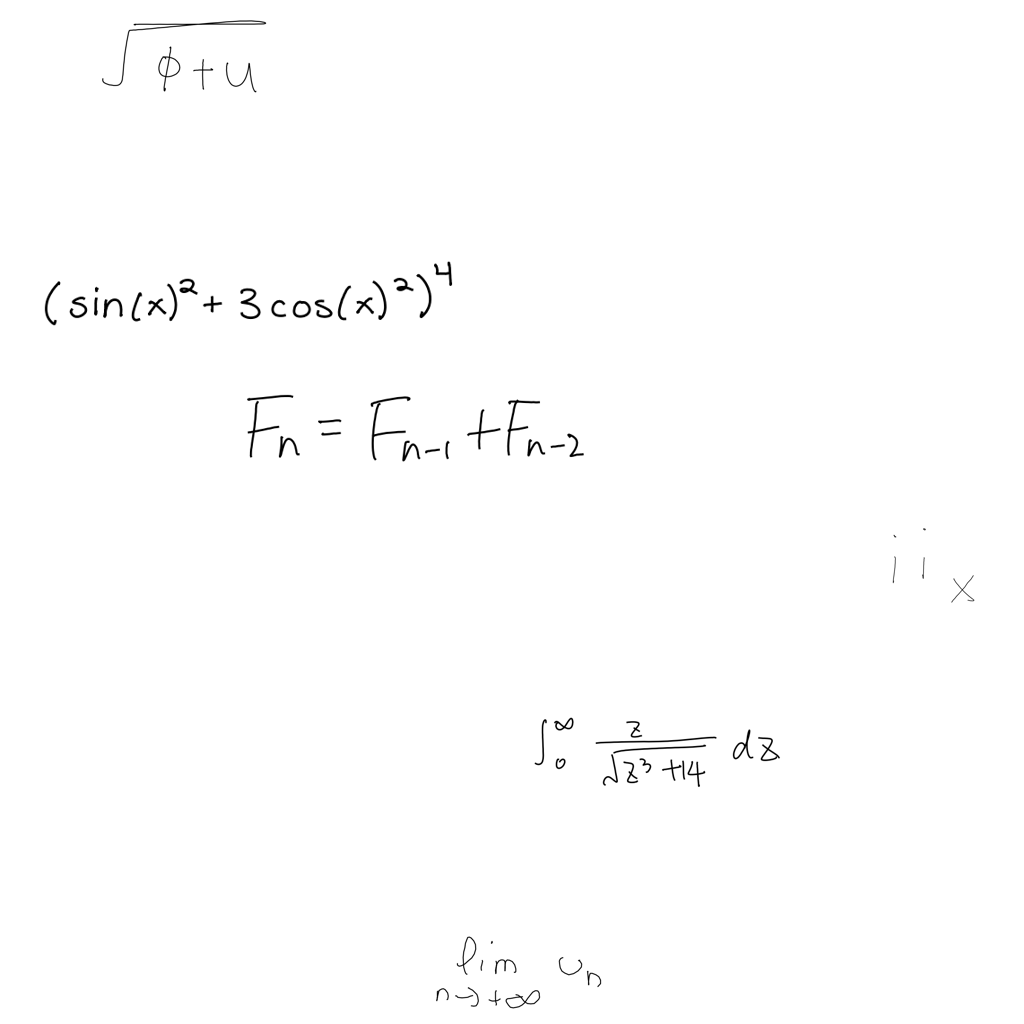 √(ϕ+u)
(sin(x)²+3cos(x)²)⁴
Fₙ = Fₙ₋₁ + Fₙ₋₂
i i ₓ
∫₀^∞ z/√(z³+14) dz
lim_{n→+∞} uₙ